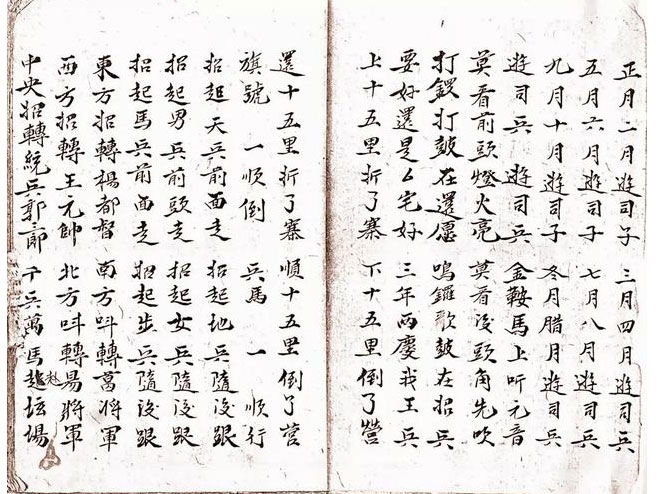 正月二月遊司子 三月四月遊司兵
五月六月遊司子 七月八月遊司兵
九月十月遊司子 冬月腊月遊司兵
遊司兵 遊司兵 金鞍馬上听元音
莫看前頭燈火亮 莫看后頭角先吹
打鑼打鼓在還愿 鳴鑼歌鼓在招兵
要好還是厶宅好 三年兩慶我王兵
上十五里折了寨 下十五里倒了營
還十五里折了寨 順十五里倒了营
旗號一順倒 兵馬一順行
招起天兵前面走 招起地兵隨后跟
招起男兵前頭走 招起女兵隨后跟
招起馬兵前面走 招起步兵隨后跟
東方招轉楊都督 南方呌轉 将軍
西方招轉王元帥 北方呌轉易將軍
中央招轉統兵郭三郎 千兵萬馬赴坛場